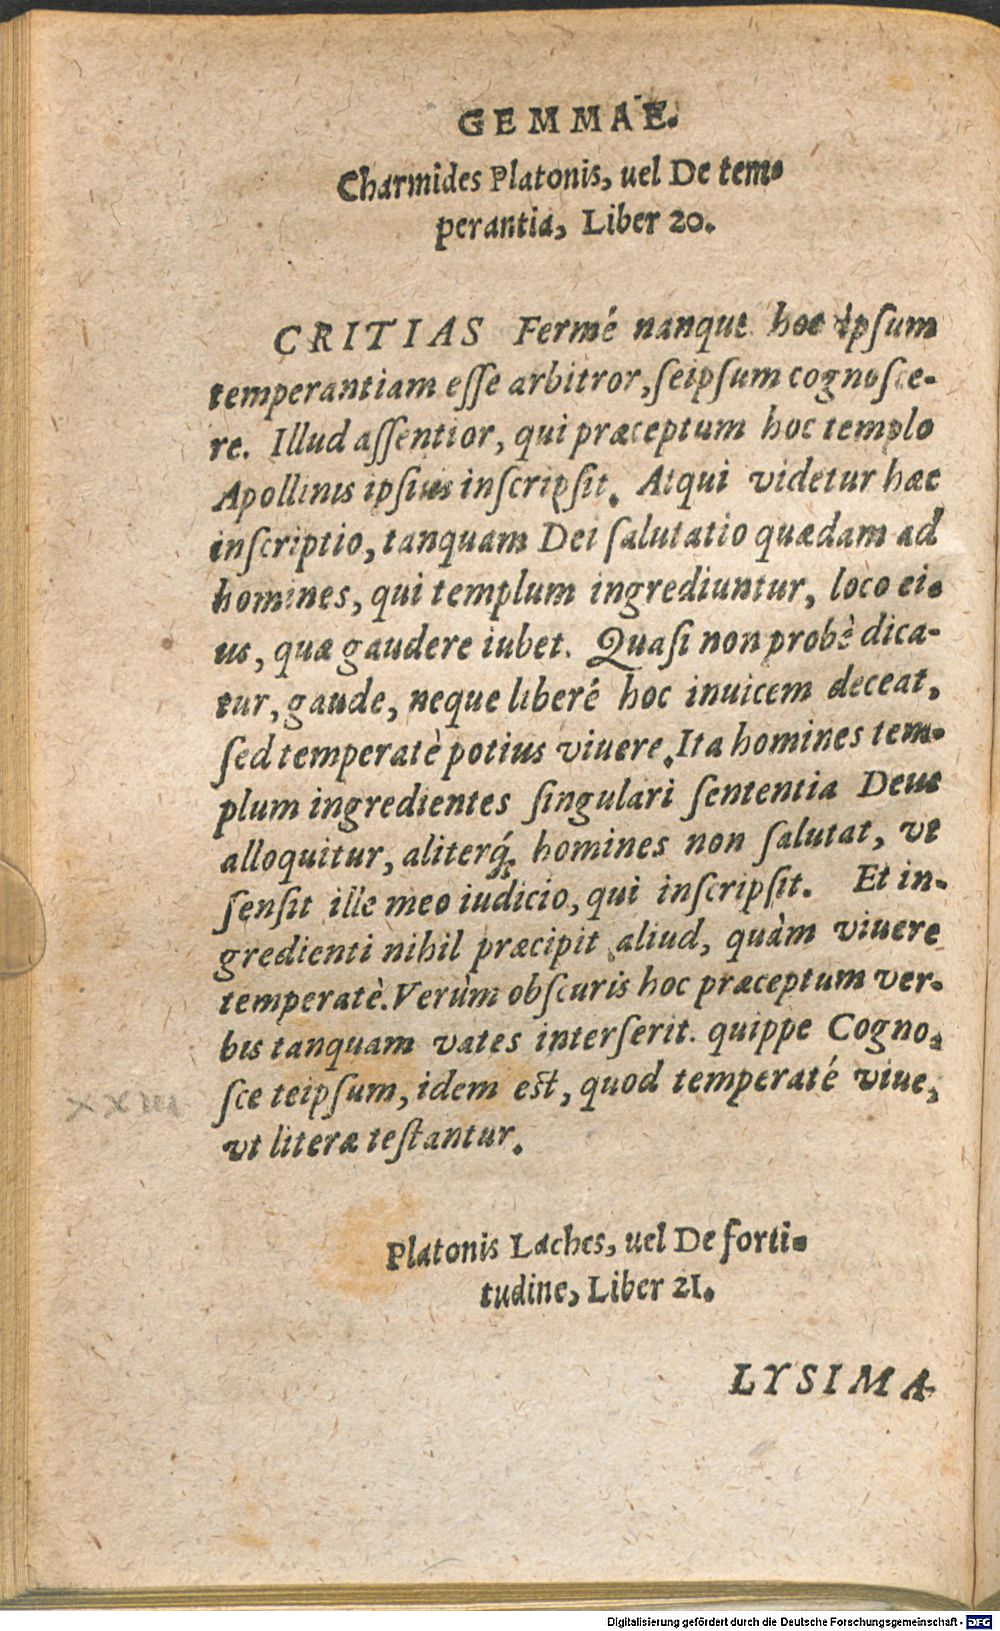 GEMMAE.
Charmides Platonis, uel De tem-
perantia, Liber 20.
CRITIAS Fermé nanque hoc ipſum
temperantiam eſſe arbitror, ſeipſum cognoſce-
re. Illud aſſentior, qui præceptum hoc templo
Apollinis ipſius inſcripſit. Atqui videtur hæc
inſcriptio, tanquam Dei ſalutatio quædam ad
homines, qui templum ingrediuntur, loco ei-
us, quæ gaudere iubet. Quaſi non probè dica-
tur, gaude, neque liberé hoc inuicem deceat,
ſed temperatè potius viuere. Ita homines tem-
plum ingredientes ſingulari ſententia Deus
alloquitur, aliterq́; homines non ſalutat, vt
ſenſit ille meo iudicio, qui inſcripſit. Et in-
gredienti nihil præcipit aliud, quàm viuere
temperatè. Verùm obſcuris hoc præceptum ver-
bis tanquam vates interſerit. quippe Cogno-
ſce teipſum, idem eſt, quod temperaté viue,
xxiii
vt literæ teſtantur.
Platonis Laches, uel De forti-
tudine, Liber 21.
LYSIMA-
Digitalisierung gefördert durch die Deutsche Forschungsgemeinschaft - DFG